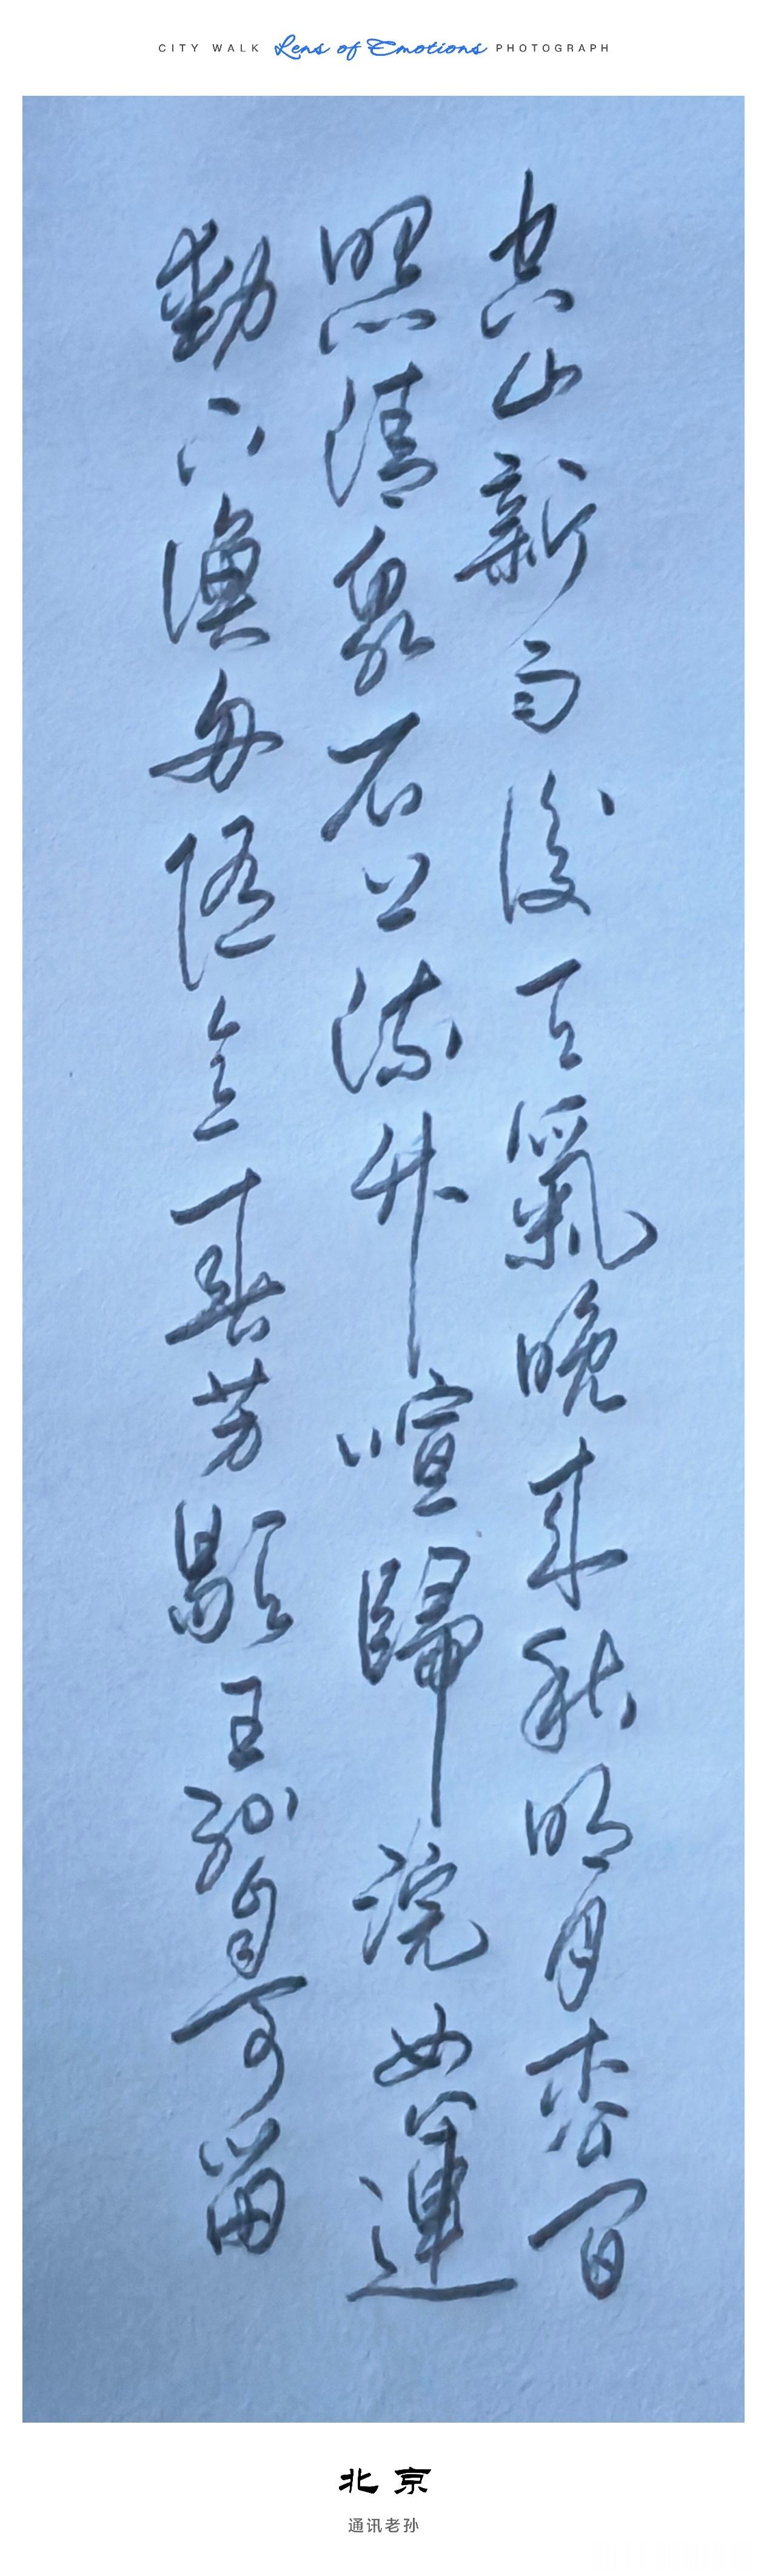 CITY WALK Lens of Emotions PHOTOGRAPH
空山新雨後天氣晚来秋明月松间
照清泉石上流竹喧歸浣女蓮
動下漁舟随意春芳歇王孫自可留
北京
通讯老孙